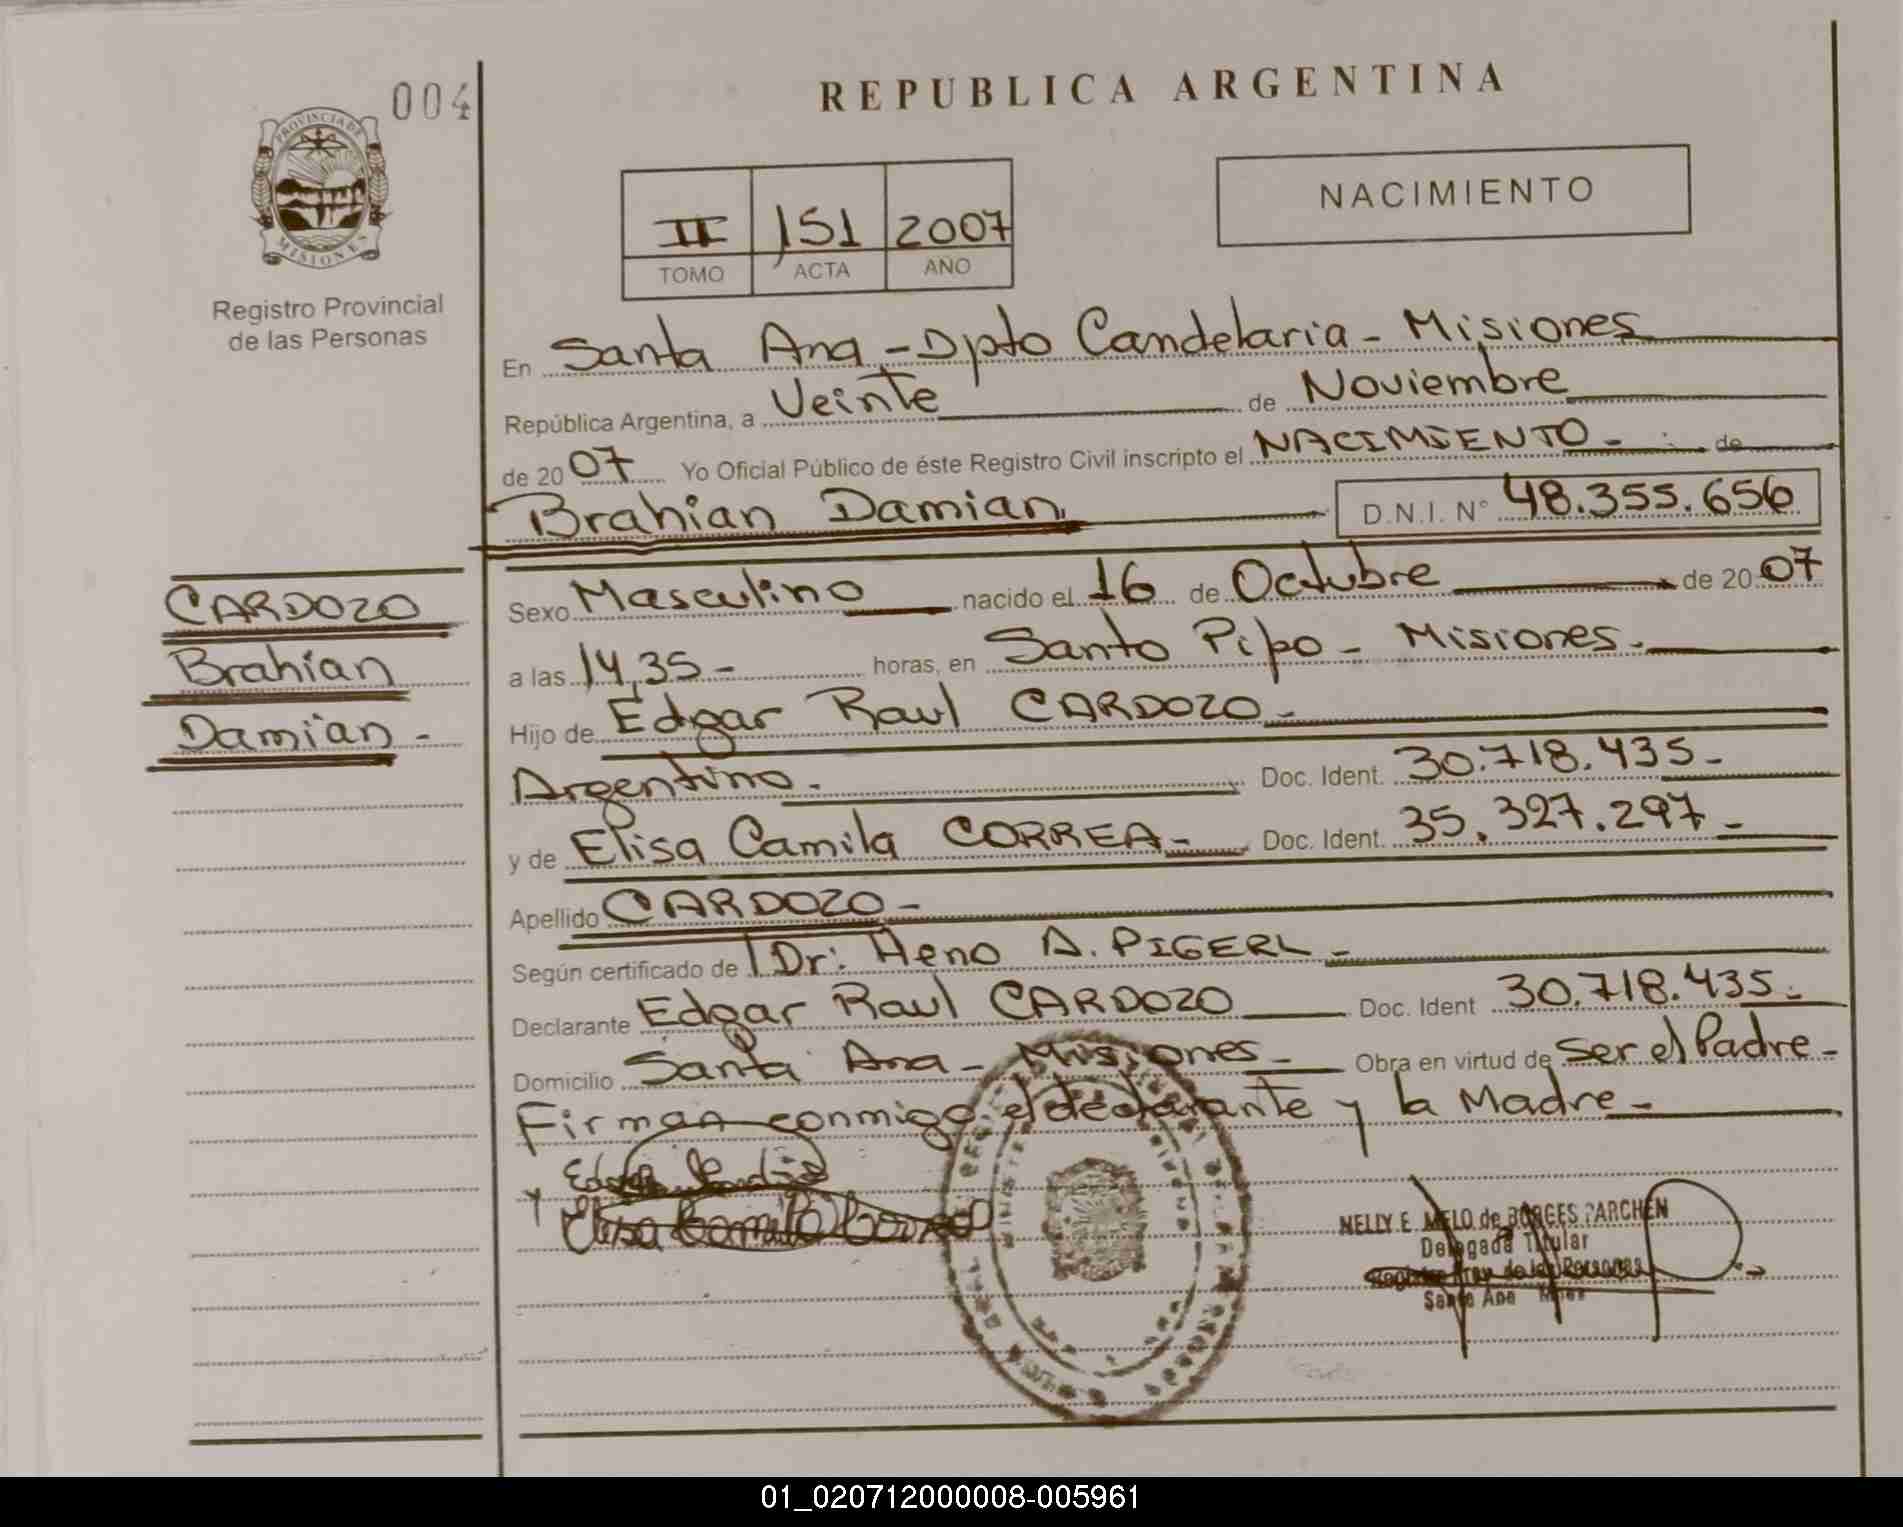 004
PROVINCIA DE
MISIONES
Registro Provincial
de las Personas
REPUBLICA ARGENTINA
II 151 2007
TOMO ACTA AÑO
NACIMIENTO
En Santa Ana - Dpto Candelaria - Misiones
República Argentina, a Veinte de Noviembre
de 2007 Yo Oficial Público de éste Registro Civil inscripto el NACIMIENTO - de
Brahian Damian D.N.I. N° 48.355.656
CARDOZO
Brahian
Damian -
Sexo Masculino nacido el 16 de Octubre de 2007
a las 14,35 - horas, en Santo Pipo - Misiones -
Hijo de Edgar Raul CARDOZO -
Argentino. Doc. Ident. 30.718.435 -
y de Elisa Camila CORREA - Doc. Ident. 35.327.297 -
Apellido CARDOZO -
Según certificado de Dr: Heno A. PIGERL -
Declarante Edgar Raul CARDOZO Doc. Ident 30.718.435 -
Domicilio Santa Ana - Misiones - Obra en virtud de Ser el Padre -
Firman conmigo el declarante y la Madre -
y Elisa Camila Correa
NELLY E. MELO de BORGES PARCHEN
Delegada Titular
Santa Ana
01_020712000008-005961